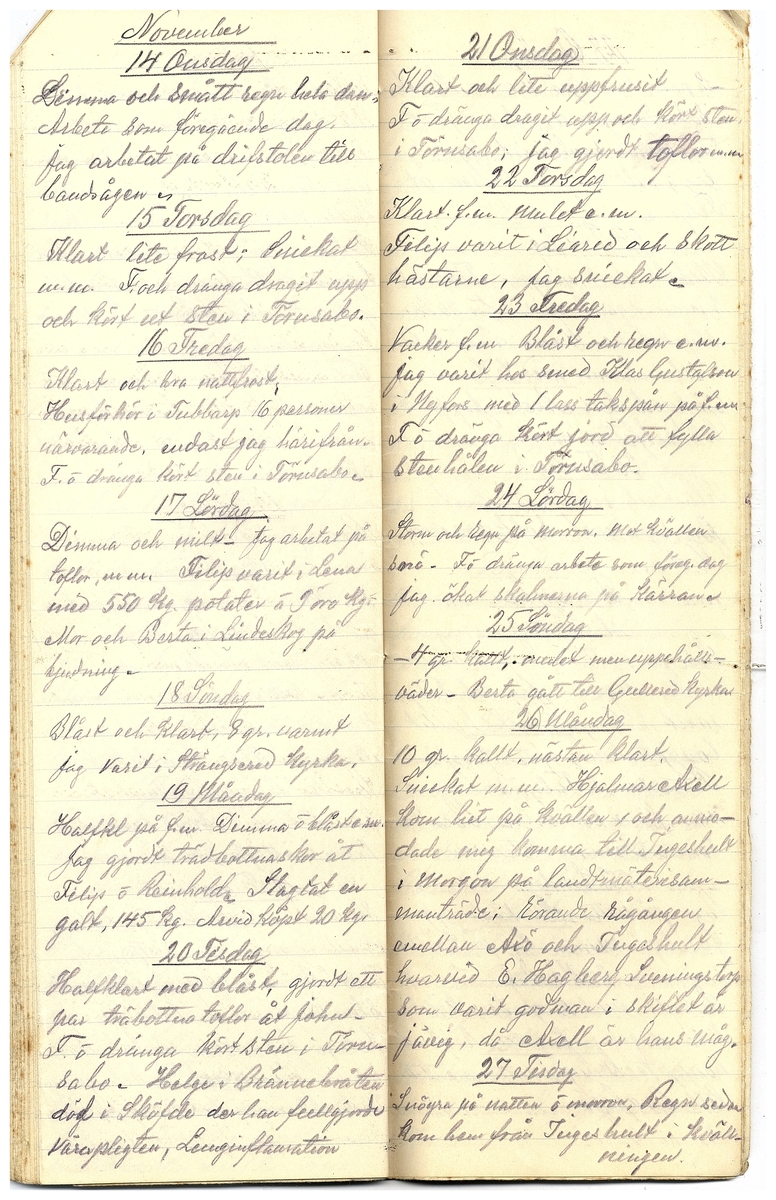 November
14 Onsdag
Dimma och smått regn hela dan,
Arbete som föregående dag.
jag arbetat på drifstolen till
bandsågen.
15 Torsdag
Klart lite frost; Snickat
m.m. F. och dränga dragit upp
och kört ut sten i Törnsabo.
16 Fredag
Klart och bra nattfrost;
Husförhör i Tubbarp 16 personer
närvarande. endast jag härifrån.
F. ö dränga kört sten i Törnsabo.
17 Lördag
Dimma och milt – Jag arbetat på
toflor, m.m. Filip varit i Lena
med 550 Kg. potater à 7 öre Kg.
Mor och Berta i Lindeskog på
bjudning.
18 Söndag
Blåst och Klart, 8 gr. varmt
jag varit i Strängsered Kyrka.
19 Måndag
Halfkl på f.m. Dimma ö blåst e.m.
Jag gjordt trädbottnaskor åt
Filip ö Reinhold, Slagtat en
galt, 145 Kg. Arvid köpt 20 Kg.
20 Tisdag
Halfklart med blåst, gjordt ett
par träbottna toflor åt John –
F. ö dränga kört sten i Törn-
sabo. Helge i Brännebråten
död i Sköfde der han fullgjorde
Värnpligten, Lunginflamation
21 Onsdag
Klart och lite uppfrusit –
F ö dränga dragit upp och kört sten
i Törnsabo; jag gjordt toflor m.m
22 Torsdag
Klart. f.m. mulet e.m.
Filip varit i Liared och skott
hästarne, jag snickat.
23 Fredag
Vacker f.m Blåst och regn e.m.
jag varit hos smed Klas Gustafson
i Nyfors med 1 lass takspån på f.m.
F ö dränga kört jord att fylla
stenhålen i Törnsabo.
24 Lördag
Storm och regn på morron. mot kvällen
snö – F ö dränga arbete som föreg. dag
jag ökat skalmerna på kärran.
25 Söndag
– 4 gr. kallt, mulet men uppehålls-
väder – Berta gått till Gullered Kyrka
26 Måndag
10 gr. kallt, nästan klart.
Snickat m.m. Hjalmar Axell
kom hit på kvällen, och anmo-
dade mig komma till Ingeshult
i morgon på landtmäterisam-
manträde; rörande rågången
emellan Axö och Ingeshult
hvarvid E. Hagberg Sveningstorp
som varit godman i skiftet är
jävig, då Axell är hans måg.
27 Tisdag
Snögra på natten ö morron, Regn sedan
kom hem från Ingeshult i kväll-
ningen.